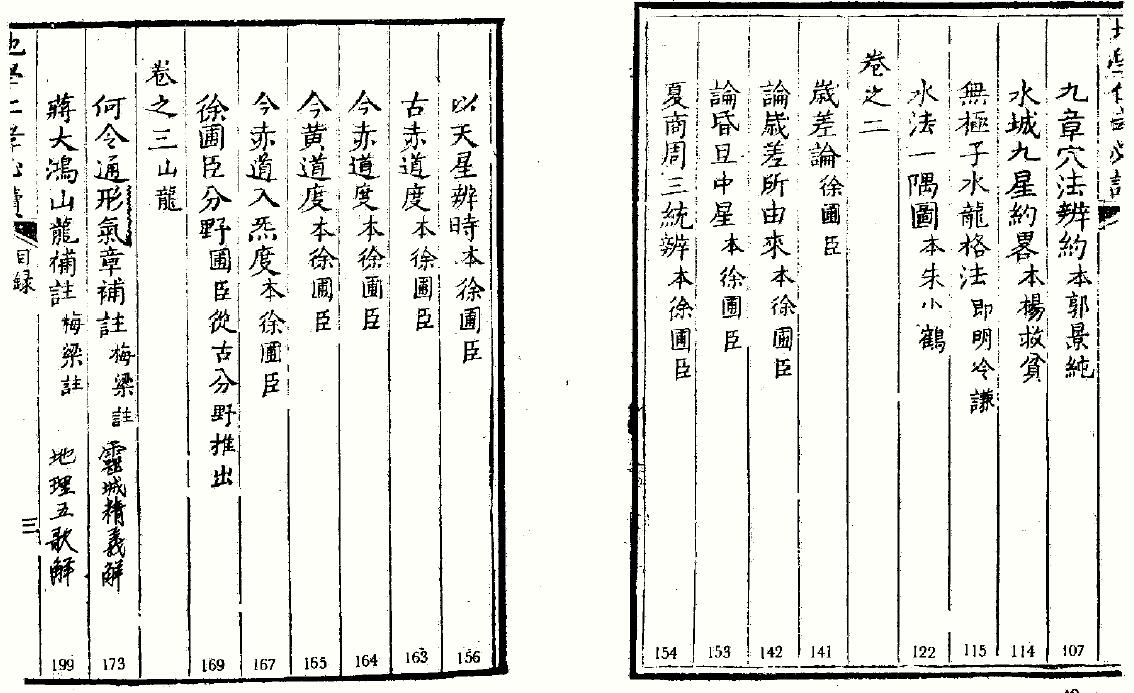 九章穴法辨約本郭景純 107
水城九星約畧本楊救貧 114
無極子水龍格法即明冷謙 115
水法一隅圖本朱小鶴 122
卷之二
歲差論徐圃臣 141
論歲差所由來本徐圃臣 142
論昏旦中星本徐圃臣 153
夏商周三統辨本徐圃臣 154
以天星辨時本徐圃臣 156
古赤道度本徐圃臣 163
今赤道度本徐圃臣 164
今黄道度本徐圃臣 165
今赤道入炁度本徐圃臣 167
徐圃臣分野圃臣從古分野推出 169
卷之三山龍
何令通形氣章補註梅梁註 靈城精義解 173
蔣大鴻山龍補註梅梁註 地理五歌解 199
目録
三